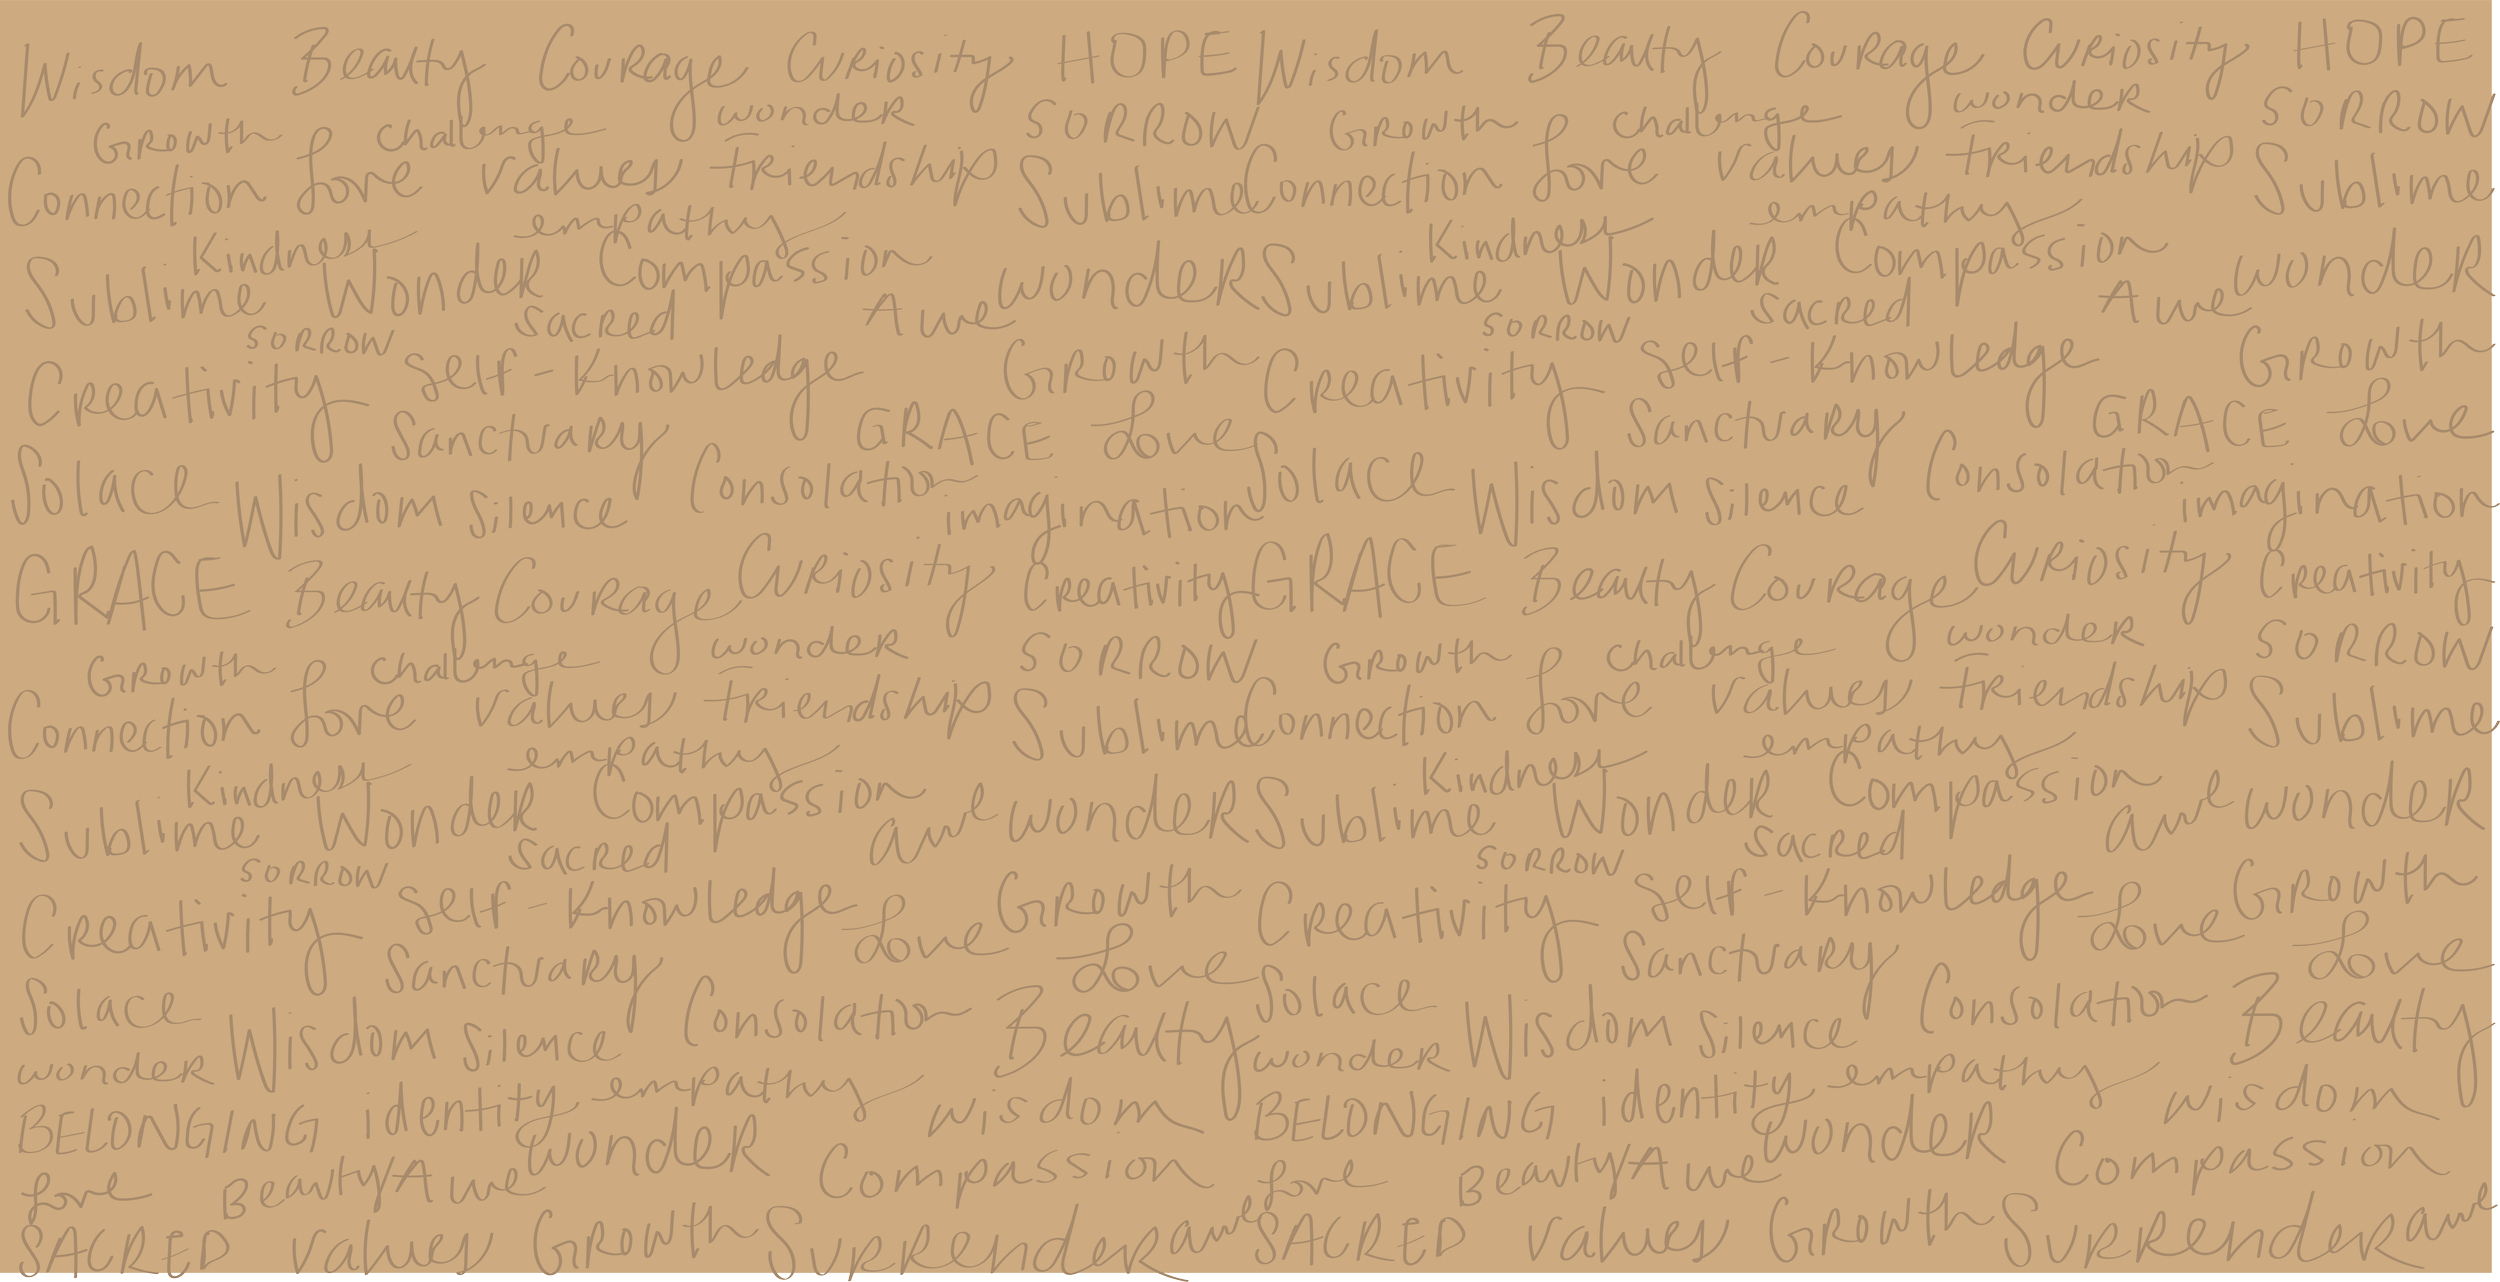 Wisdom Beauty Courage Curiosity HOPE Wisdom Beauty Courage Curiosity HOPE
Growth challenge wonder SORROW Growth challenge wonder SORROW
Connection love values friendship Sublime Connection love values friendship Sublime
Kindness empathy Kindness empathy
Sublime Wonder Compassion wonder Sublime Wonder Compassion wonder
SORROW Sacred Awe SORROW Sacred Awe
Creativity Self-Knowledge Growth Creativity Self-Knowledge Growth
Sanctuary GRACE love Sanctuary GRACE love
Solace Wisdom Silence Consolation imagination Solace Wisdom Silence Consolation imagination
GRACE Beauty Courage Curiosity Creativity GRACE Beauty Courage Curiosity Creativity
Growth challenge wonder SORROW Growth challenge wonder SORROW
Connection love values friendship Sublime Connection love values friendship Sublime
Kindness empathy Kindness empathy
Sublime Wonder Compassion awe wonder Sublime Wonder Compassion awe wonder
SORROW Sacred SORROW Sacred
Creativity Self-Knowledge love Growth Creativity Self-Knowledge love Growth
Sanctuary love Sanctuary love
Solace Wisdom Silence Consolation Beauty Solace Wisdom Silence Consolation Beauty
wonder empathy wonder empathy
BELONGING identity wisdom BELONGING identity wisdom
love Beauty Awe wonder Compassion love Beauty Awe wonder Compassion
SACRED values Growth Surrender awe SACRED values Growth Surrender awe